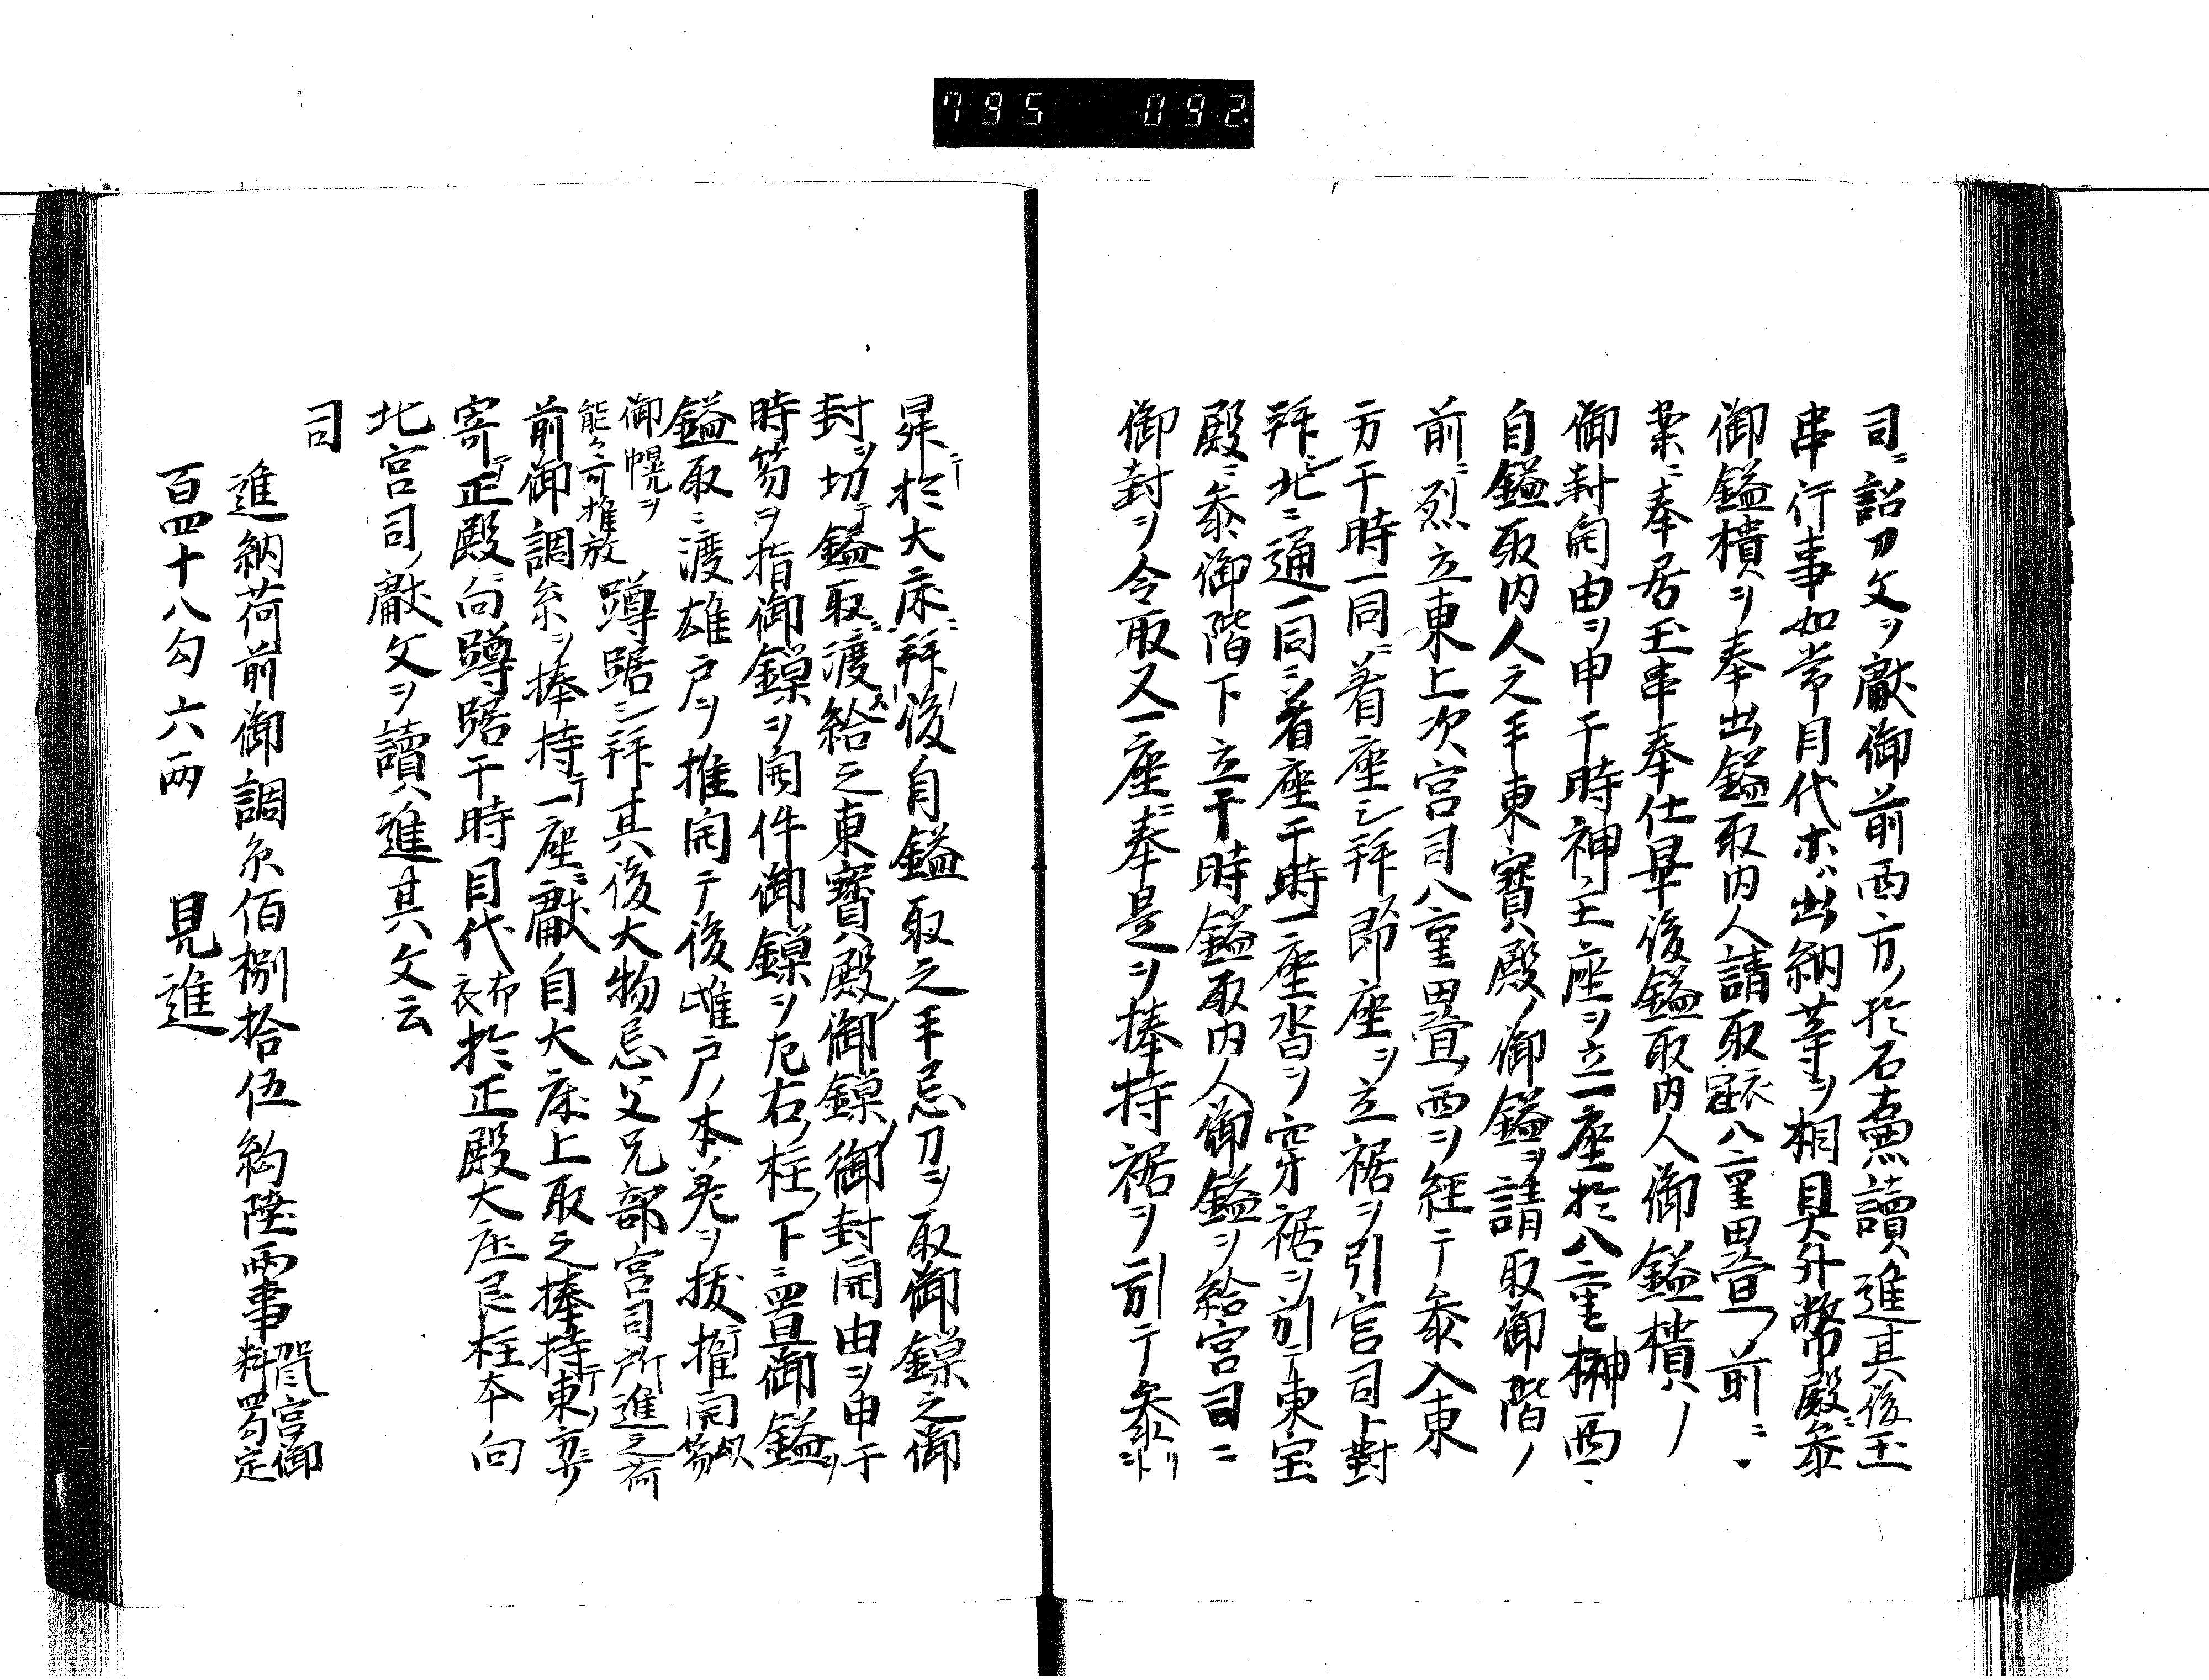 795 092
司ニ詔刀文ヲ献御前西方ノ於石壺讀進其後玉
串行事如常目代ホハ出納等ヲ相具外幣殿ニ参
御鎰樻ヲ奉出鎰取内人請取衣冠八重畳ノ前ニ
案ニ奉居玉串奉仕畢後鎰取内人御鎰樻ノ
御封開由ヲ申于時神主座ヲ立一座於八重榊西
自鎰取内人之手東寳殿ノ御鎰ヲ請取御階ノ
前ニ烈立東上次宮司八重畳西ヲ経テ参入東
方于時一同ニ着座シ拝即座ヲ立裾ヲ引宮司ト對
拝シ北ニ通一同ニ着座于時一座沓ヲ穿裾ヲ引テ東宝
殿ニ参御階下立于時鎰取内人御鎰ヲ給宮司ニ
御封ヲ令取又一座ニ奉是ヲ捧持裾ヲ引テ参リ
昇テ於大床ニ拝ノ後自鎰取之手忌刀ヲ取御鏁之御
封ヲ切テ鎰取ニ渡給之東寳殿ノ御鏁ノ御封開由ヲ申于
時笏ヲ指御鏁ヲ開件御鏁ヲ左右ノ柱ノ下ニ置御鎰ヲ
鎰取ニ渡雄戸ヲ推開テ後雌戸ノ本ヲ推開
御幌ヲ能々可推放蹲踞シ拝其後大物忌父兄部宮司所進之荷
前御調糸ヲ捧持テ一座ニ献自大床上取之捧持テ東ノ方ニ
寄テ正殿ニ向蹲踞于時目代布衣於正殿大床艮柱本向
北宮司ノ献文ヲ讀進其文云
司
進納荷前御調糸佰捌拾伍絇陸兩事
百四十八勾六兩 見進